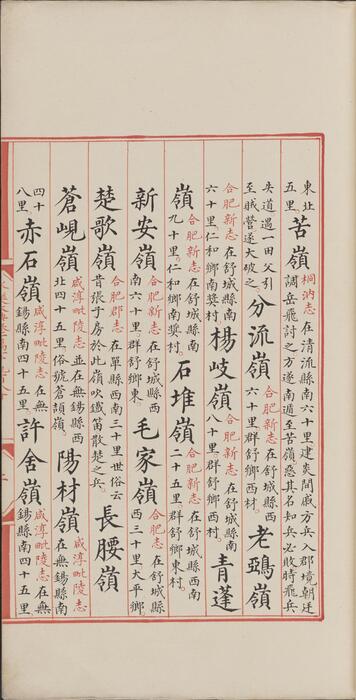 東北五里苦嶺桐汭志在清流縣南六十里建炎間戚方兵入郡境朝廷調岳飛討之方遂南遁至苦嶺惡其名知兵必敗時飛兵
失道遇一田父引至賊營遂大破之分流嶺合肥新志在舒城縣西六十里群舒鄉西材。老鵶嶺
合肥新志在舒城縣南六十里仁和鄉南奬村楊岐嶺合肥新志在舒城縣南八十里群舒鄉西村。青蓬
嶺合肥新志在舒城縣南九十里。仁和鄉南奬村。石堆嶺合肥新志在舒城縣西南二十五里群舒鄉東村。
新安嶺合肥新志在舒城縣西南六十里群舒鄉東毛家嶺合肥志在舒城縣西三十里大平鄉。
楚歌嶺合肥郡志在單縣西南三十里世俗云昔張子房於此嶺吹鐵笛散楚之兵。長腰嶺
蒼峴嶺咸淳毗陵志並在無錫縣西北四十五里俗號蒼頡嶺。陽材嶺咸淳毗陵志在無錫縣南
四十八里。赤石嶺咸淳毗陵志在無錫縣南四十五里。許舍嶺咸淳毗陵志在無錫縣南四十五里